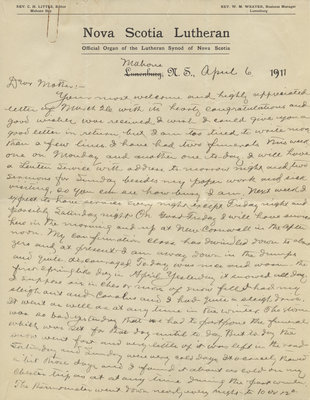 REV. C. H. LITTLE, Editor
Mahone Bay
REV. W. M. WEAVER, Business Manager
Lunenburg
Nova Scotia Lutheran
Official Organ of the Lutheran Synod of Nova Scotia
Mahone
Lunenburg, N. S., April 6 1911
Dear Mother:-
Your most welcome and highly appreciated
letter of March 26 with its hearty congratulations and
good wishes was received. I wish I could give you a
good letter in return but I am too tired to write more
than a few lines. I have had two funerals this week
one on Monday and another one to-day. I will have
a Lenten Service with address to-morrow night and two
sermons for Sunday besides my paper work and sick
visiting, so you can see how busy I am. Next week I
expect to have services every night except Friday night and
possibly Saturday night. On Good Friday I will have services
here in the morning and up at New Cornwall in the after
noon. My confirmation class has dwindled down to
and at present I am away down in the dumps
and quite discouraged. To-day was nice and warm the
first springlike day in April. Yesterday it snowed all day.
I suppose six inches or more of snow fell. I had my
sleigh out and Carolus and I had quite a sleigh drive.
It went as well as at any time in the winter. The storm
was so bad yesterday that we had to postpone the funeral
which was set for that day until to-day. But to-day the
snow went fast and very little of it was left in the road.
Saturday and Sunday were very cold days. It scarcely thawed
in but those days and I found it about as cold on my
Chester trip as at at any time during the past winter.
The thermometer went down nearly every night to 10 or 12°